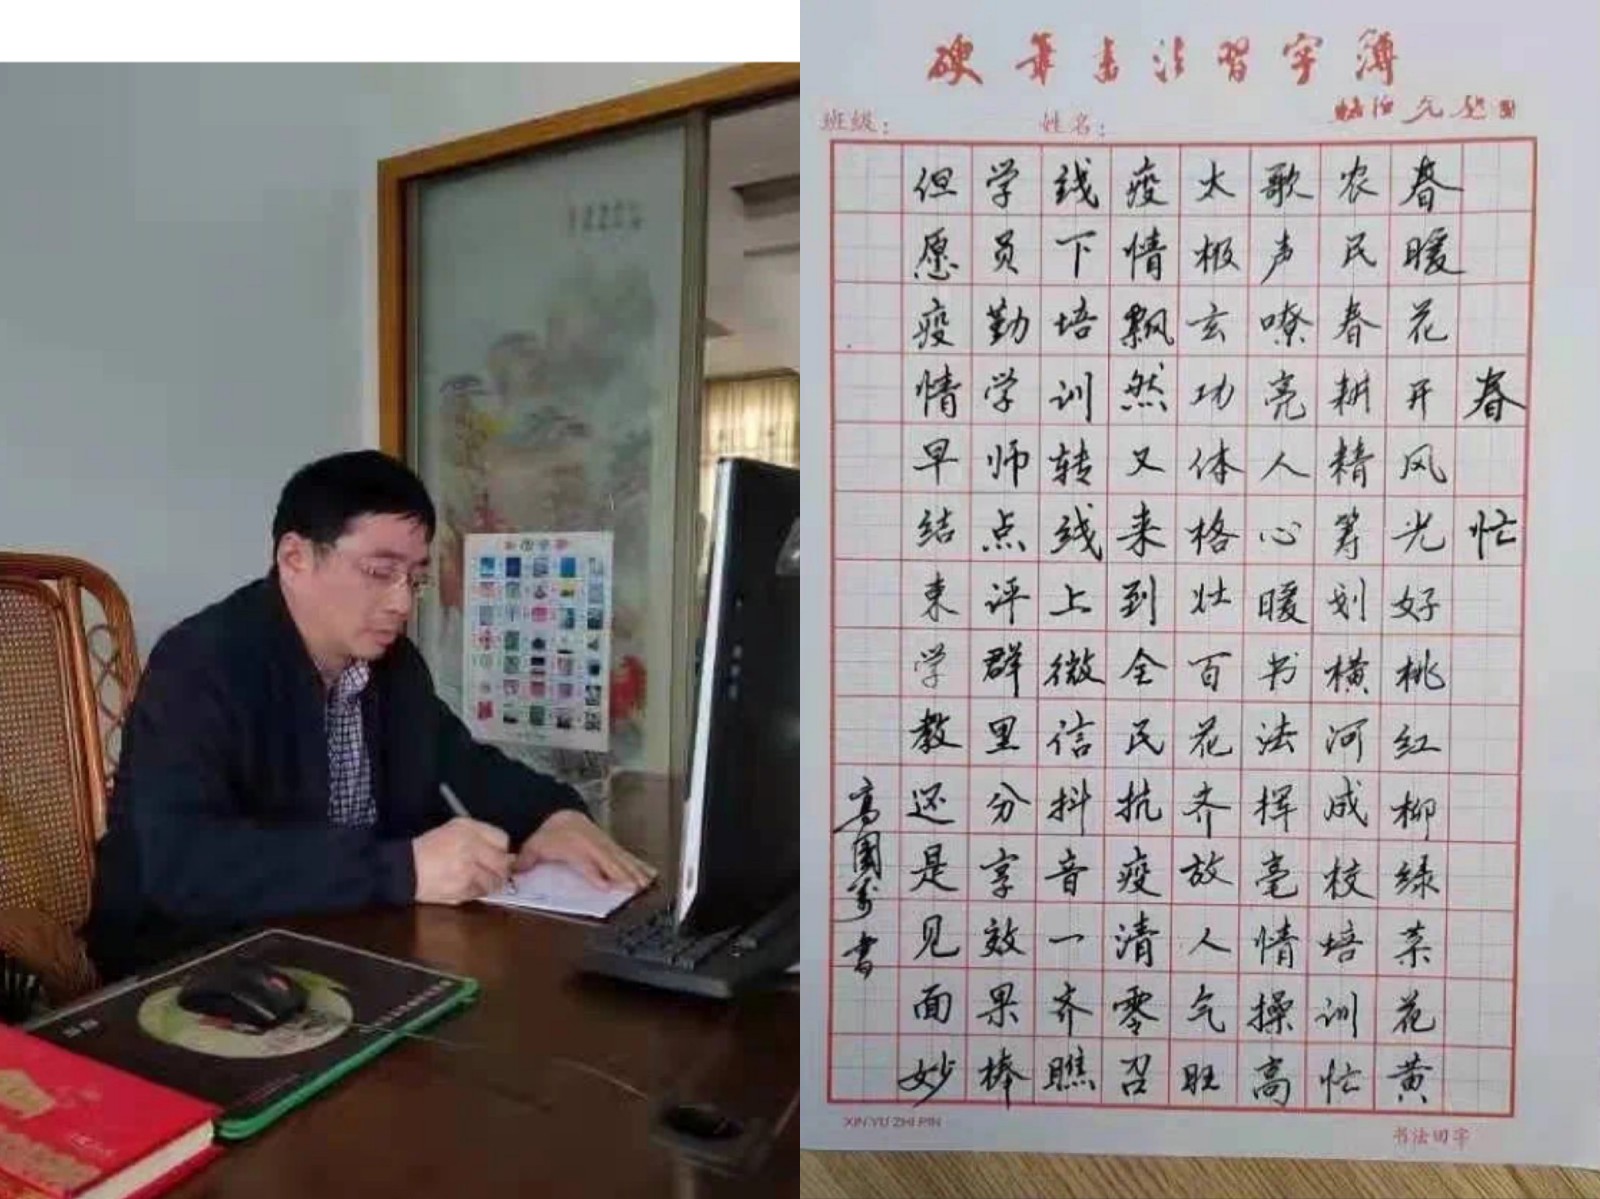 硬筆書法習字薄
班级：
姓名：
春忙
春暖花开风光好桃红柳绿菜花黄
农民春耕精筹划横河成校培训忙
歌声嘹亮人心暖书法挥毫情操高
太极玄功体格壮百花齐放人气旺
疫情飘然又来到全民抗疫清零召
线下培训转线上微信抖音一齐瞧
学员勤学师点评群里分享效果棒
但愿疫情早结束学教还是见面妙
高國萬書
XIN YU ZHI PIN
书法田字